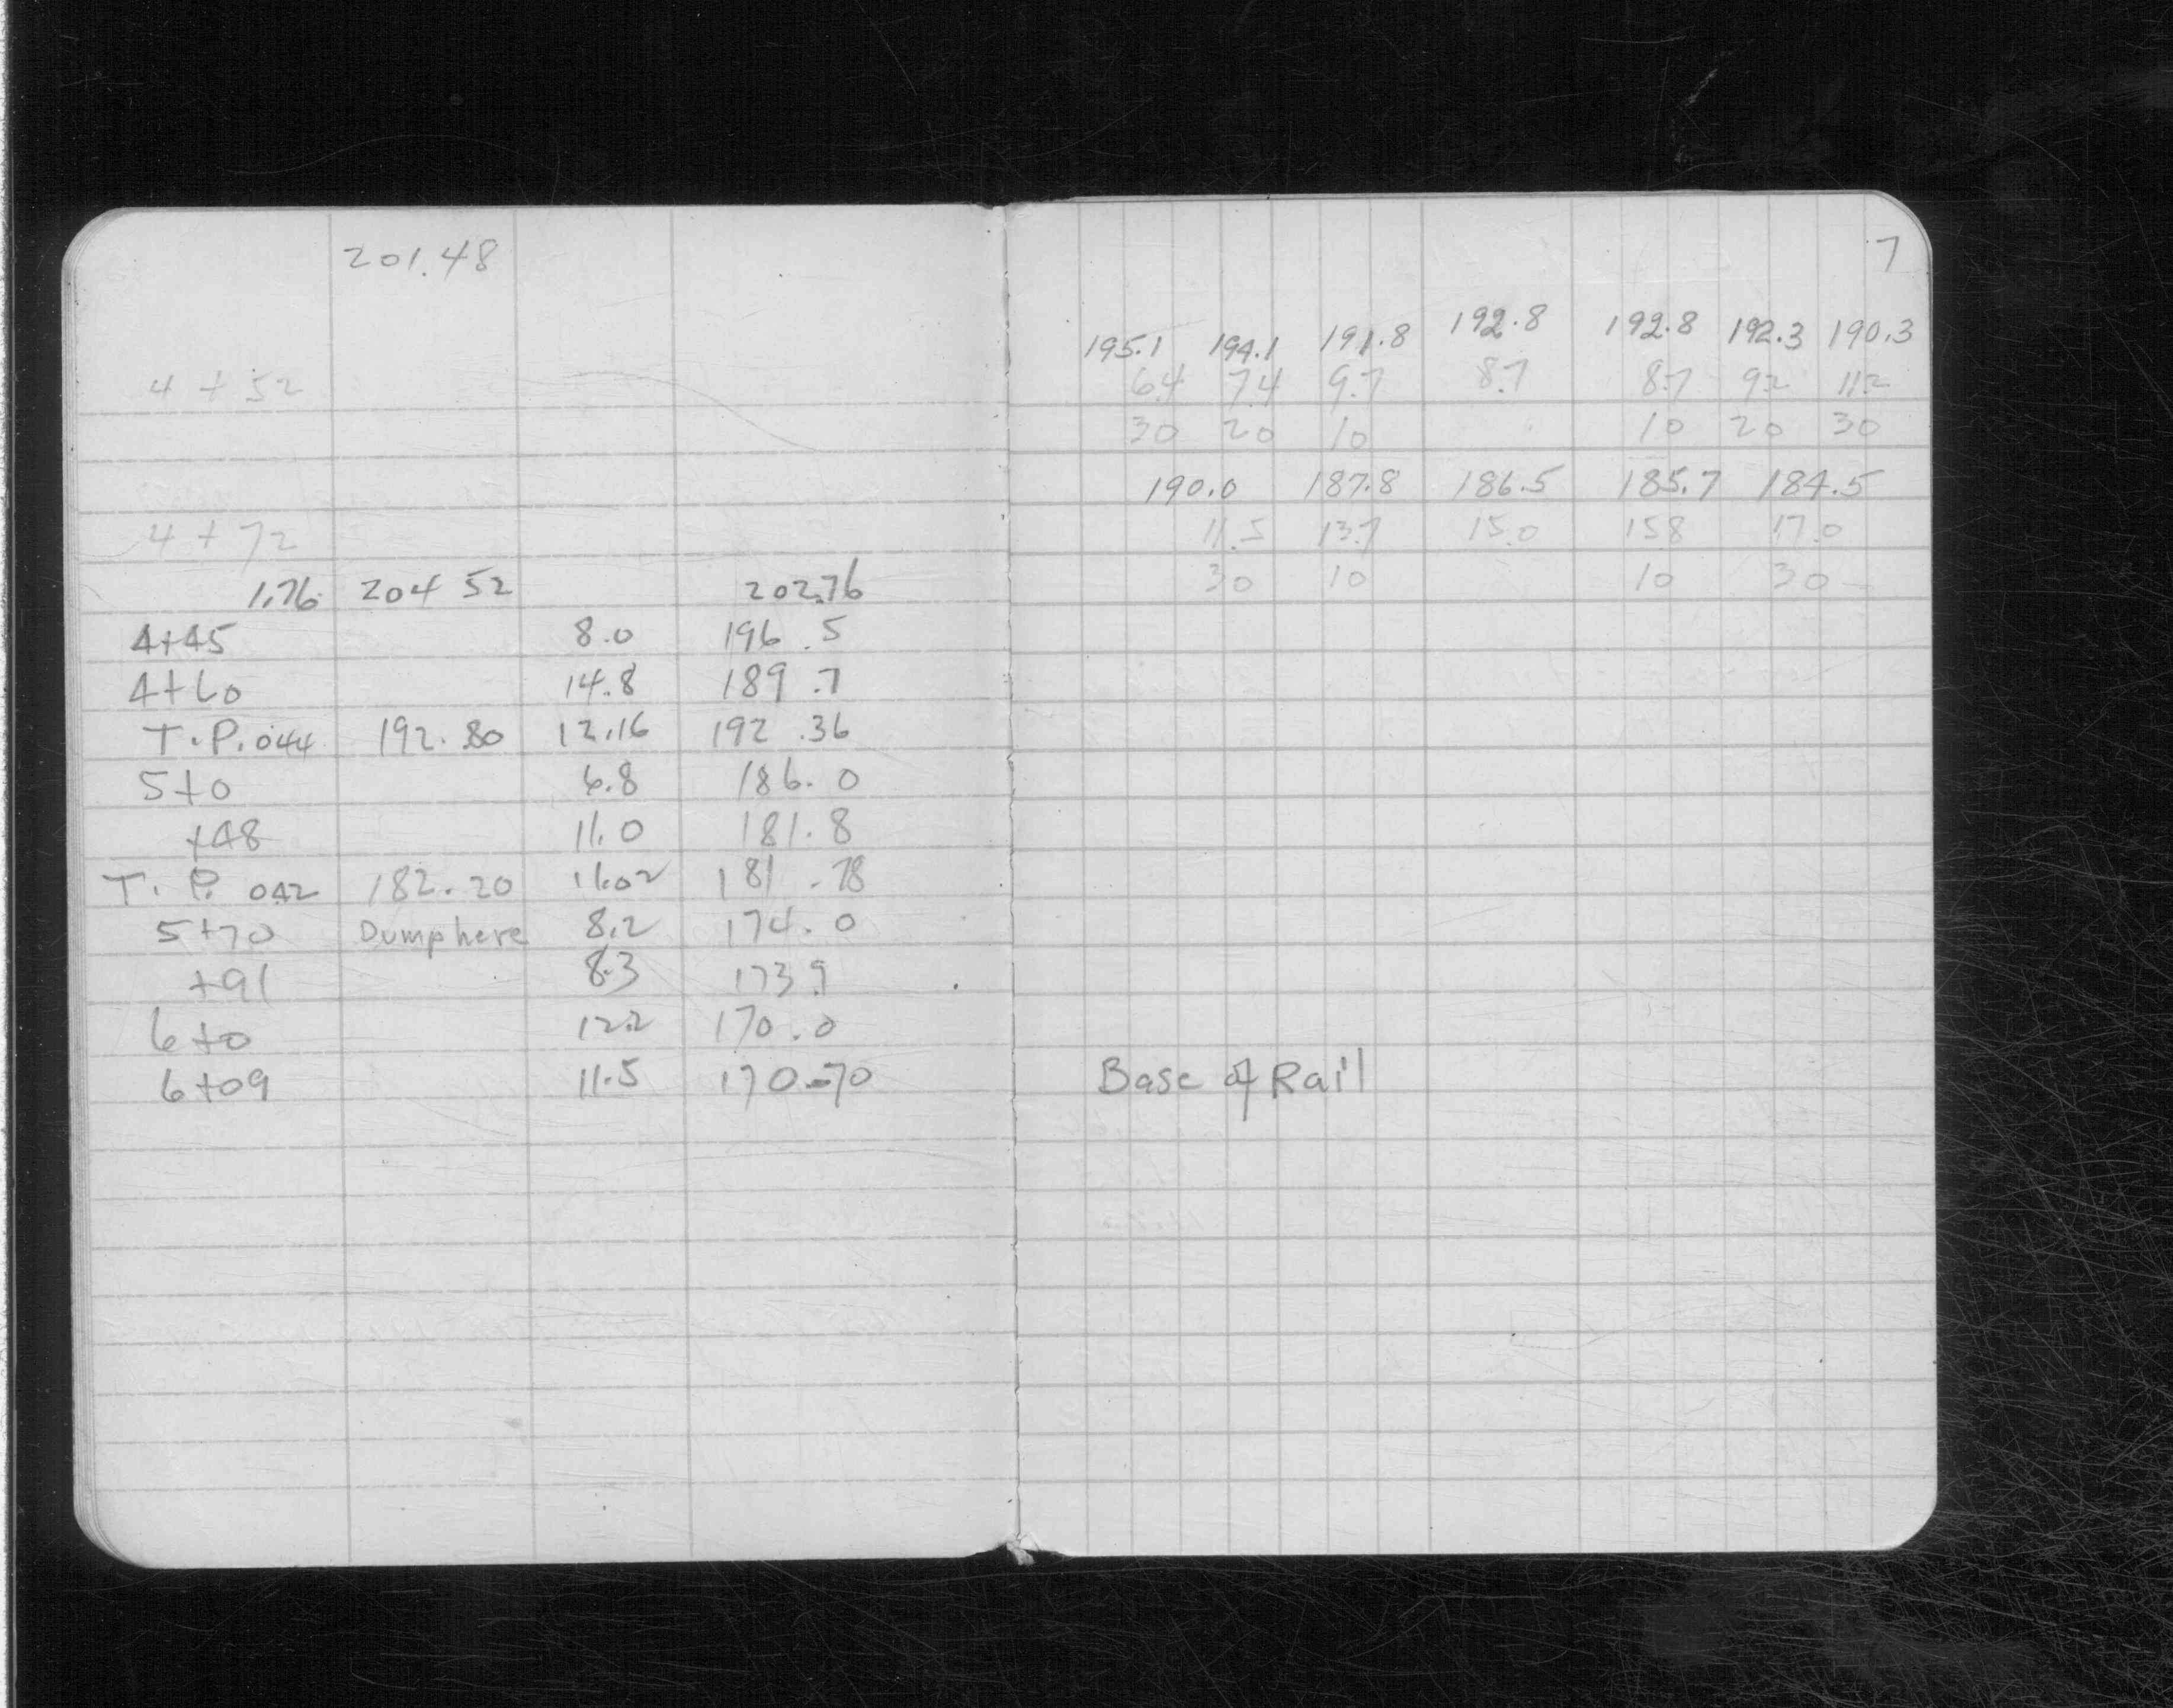 201.48
4 + 52
4 + 72
1.76 204 52 202.76
4+45 8.0 196 .5
4+60 14.8 189 .7
T.P. 044 192.80 12.16 192 .36
5+0 6.8 186.0
+48 11.0 181.8
T.P. 042 182.20 11.02 181 .78
5+70 Dump here 8.2 174.0
+91 8.3 173 9
6+0 12.2 170.0
6+09 11.5 170.70
7
195.1 194.1 191.8 192.8 192.8 192.3 190.3
6.4 7.4 9.7 8.7 8.7 9.2 11.2
30 20 10 10 20 30
190.0 187.8 186.5 185.7 184.5
11.5 13.7 15.0 15 8 17.0
30 10 10 30
Base of Rail